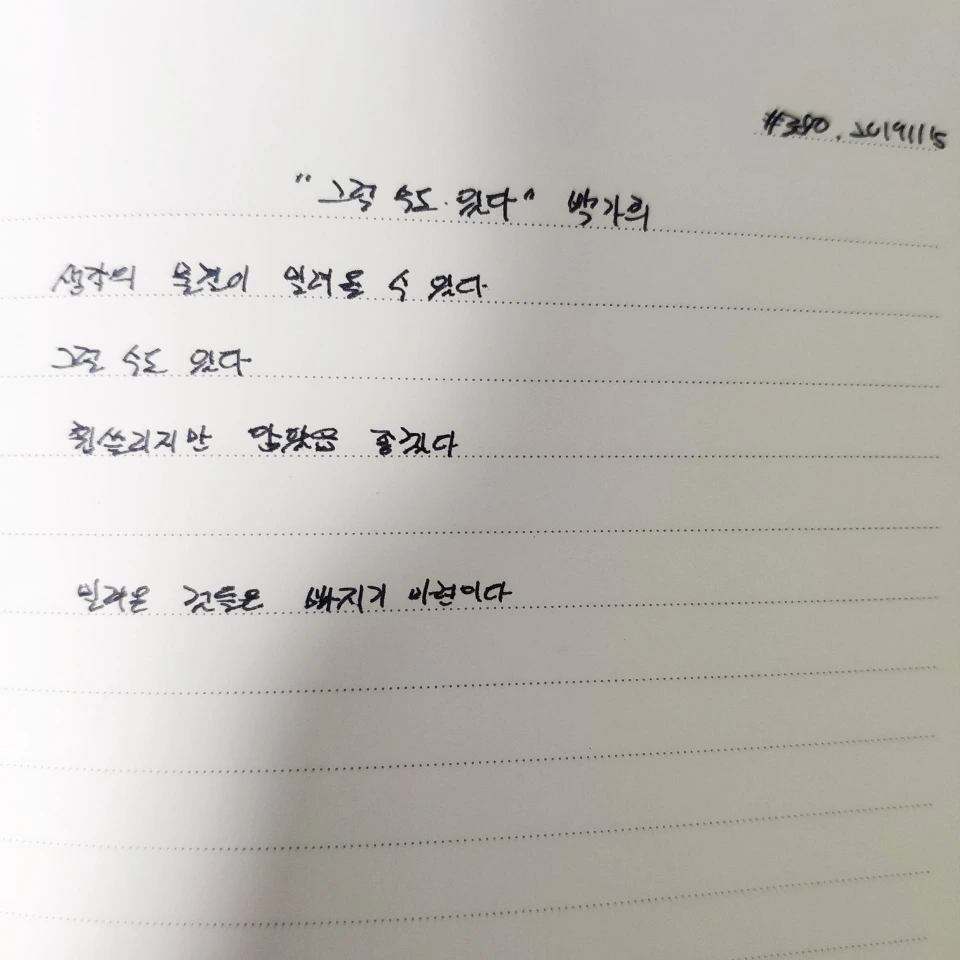 #380. 20191115
"그럴 수도 있다" 박가희
생각의 물결이 밀려올 수 있다
그럴 수도 있다
휩쓸리지만 않았음 좋겠다
밀려온 것들은 빠지기 마련이다